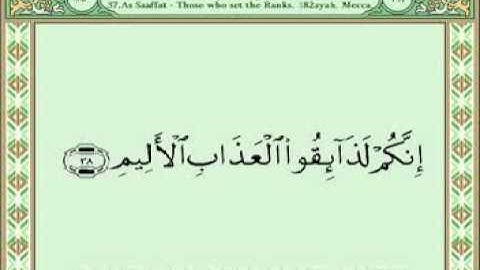 37.As Saaffat - Those who set the Ranks, 182ayah, Mecca.
إِنَّكُمْ لَذَآئِقُوا۟ ٱلْعَذَابِ ٱلْأَلِيمِ ٣٨